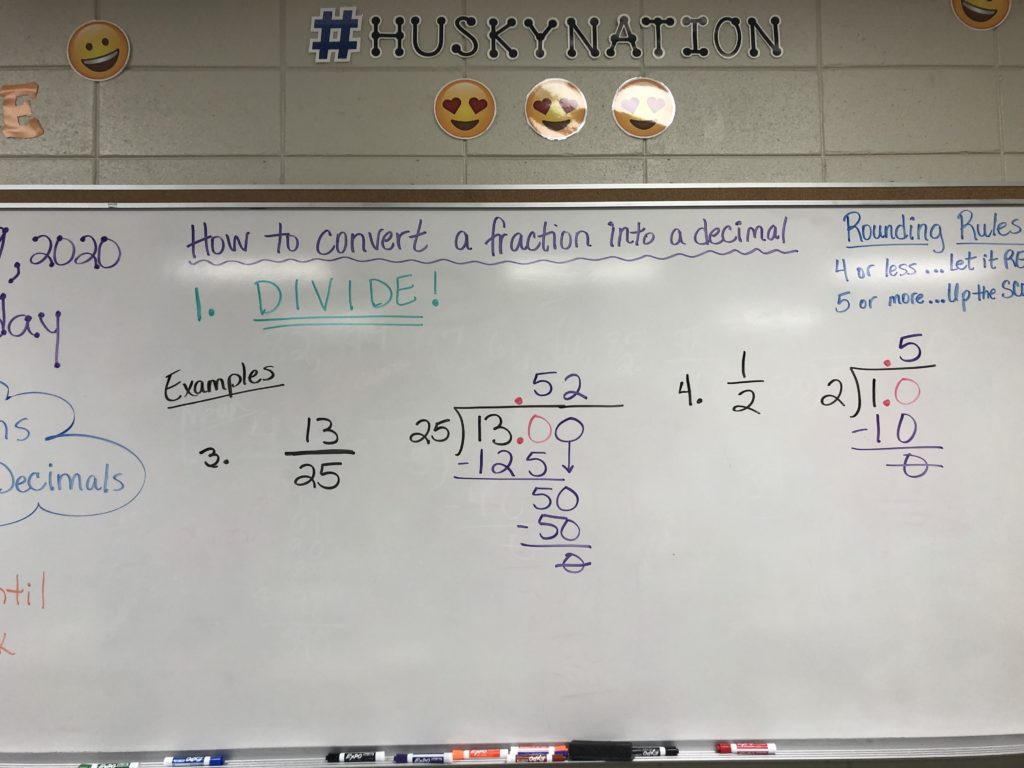 #HUSKYNATION
E
, 2020
day
How to convert a fraction into a decimal
1. DIVIDE!
Rounding Rules
4 or less ... Let it RE
5 or more ... Up the SCO
Examples
3. 13
25
.52
25)13.00
-125
50
-50
0
4. 1
2
.5
2)1.0
-10
0
ns
Decimals
ntil
k
EXPO